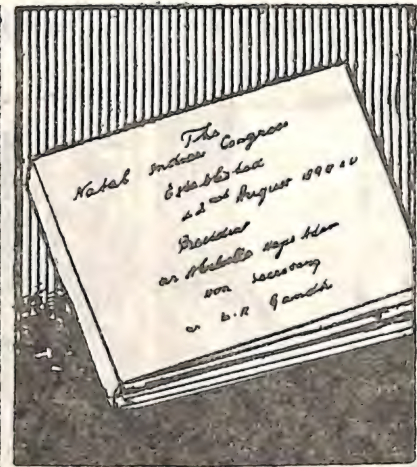 The
Natal Indian Congress
Established
22nd August 1894
President
Abdulla Haji Adam
Hon Secretary
Gandhi